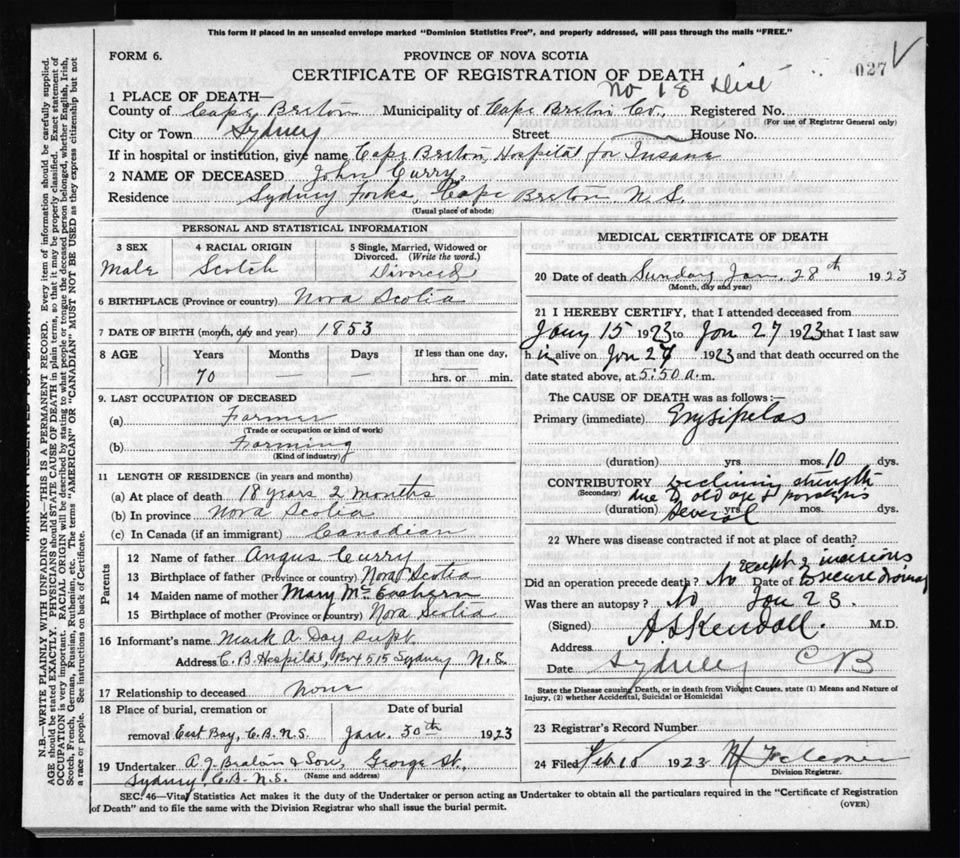 This form if placed in an unsealed envelope marked "Dominion Statistics Free", and properly addressed, will pass through the mails "FREE."
FORM 6.
PROVINCE OF NOVA SCOTIA
027
CERTIFICATE OF REGISTRATION OF DEATH
No 18 Dist
1 PLACE OF DEATH—
County of Cape Breton Municipality of Cape Breton Co., Registered No.
(For use of Registrar General only)
City or Town Sydney Street House No.
If in hospital or institution, give name Cape Breton Hospital for Insane
2 NAME OF DECEASED John Curry.
Residence Sydney Forks, Cape Breton N.S.
(Usual place of abode)
PERSONAL AND STATISTICAL INFORMATION
3 SEX Male
4 RACIAL ORIGIN Scotch
5 Single, Married, Widowed or Divorced. (Write the word.) Divorced
6 BIRTHPLACE (Province or country) Nova Scotia
7 DATE OF BIRTH (month, day and year) 1853
8 AGE Years Months Days If less than one day,
70 — — hrs. or min.
9. LAST OCCUPATION OF DECEASED
(a) Farmer
(Trade or occupation or kind of work)
(b) Farming
(Kind of industry)
11 LENGTH OF RESIDENCE (in years and months)
(a) At place of death 18 years 2 months
(b) In province Nova Scotia
(c) In Canada (if an immigrant) Canadian
Parents
12 Name of father Angus Curry
13 Birthplace of father (Province or country) Nova Scotia
14 Maiden name of mother Mary McEachern
15 Birthplace of mother (Province or country) Nova Scotia
16 Informant's name Mark A. Day Supt
Address C.B. Hospital, Box 515 Sydney N.S.
17 Relationship to deceased None
18 Place of burial, cremation or Date of burial
removal East Bay, C.B. N.S. Jan. 30th 1923
19 Undertaker A. J. Beaton & Son, George St.
Sydney C.B. N.S. (Name and address)
MEDICAL CERTIFICATE OF DEATH
20 Date of death Sunday Jan. 28th 1923
(Month, day and year)
21 I HEREBY CERTIFY, that I attended deceased from
Jany 15 1923 to Jan 27 1923 that I last saw
h im alive on Jan 1923 and that death occurred on the
date stated above, at 5:50 a.m.
The CAUSE OF DEATH was as follows:—
Primary (immediate) Erysipelas
(duration) yrs mos. 10 dys.
CONTRIBUTORY declining strength
(Secondary) due to old age & paralysis
(duration) Several yrs. mos. dys.
22 Where was disease contracted if not at place of death?
except incisions
Did an operation precede death? No Date of to secure drainage
Was there an autopsy? No Jan 23.
(Signed) A S Kendall. M.D.
Address
Date Sydney C B
State the Disease causing Death, or in death from Violent Causes, state (1) Means and Nature of Injury, (2) whether Accidental, Suicidal or Homicidal
23 Registrar's Record Number
24 Filed Feb 10 1923
Division Registrar.
SEC. 46—Vital Statistics Act makes it the duty of the Undertaker or person acting as Undertaker to obtain all the particulars required in the "Certificate of Registration
of Death" and to file the same with the Division Registrar who shall issue the burial permit.
(OVER)
N.B.—WRITE PLAINLY WITH UNFADING INK—THIS IS A PERMANENT RECORD. Every item of information should be carefully supplied.
AGE should be stated EXACTLY. PHYSICIANS should STATE CAUSE OF DEATH in plain terms, so that it may be properly classified. Exact statement of
OCCUPATION is very important. RACIAL ORIGIN will be described by stating to what people or tongue the deceased person belonged, whether English, Irish,
Scotch, French, German, Russian, Ruthenian, etc. The terms "AMERICAN" OR "CANADIAN" MUST NOT BE USED as they express citizenship but not
a race or people. See instructions on back of Certificate.